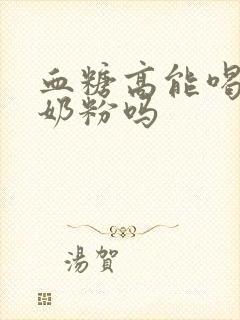 血糖高能喝
奶粉吗
湯賀